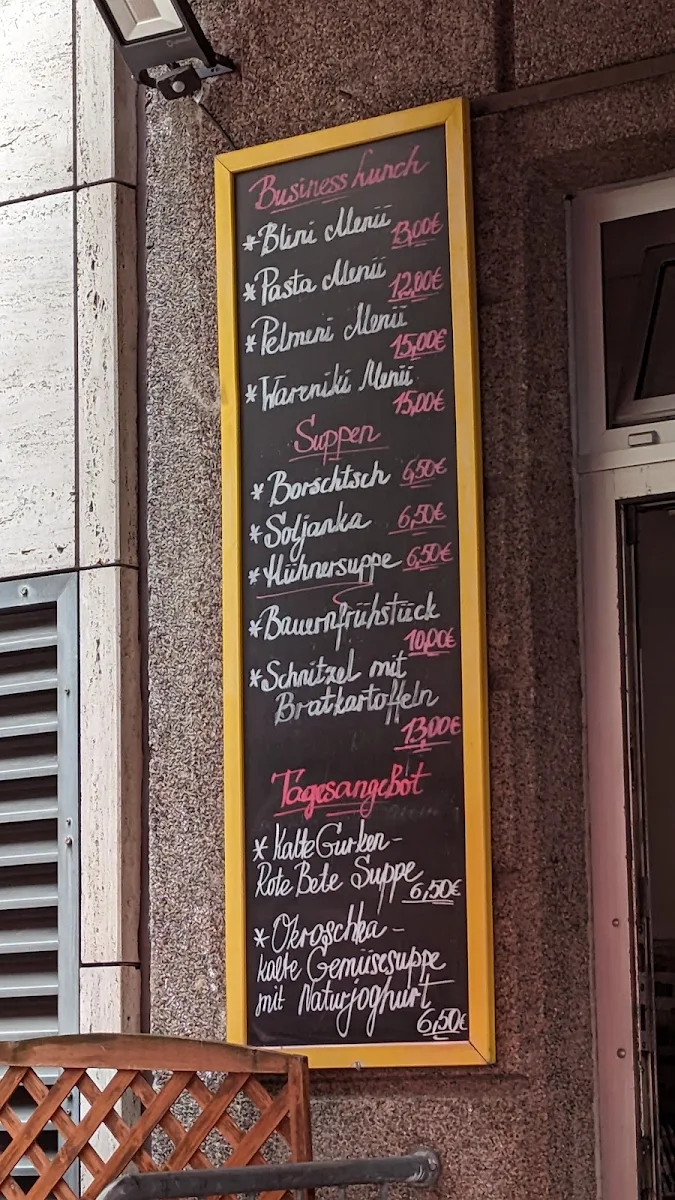 Business Lunch
*Blini Menü 13,00€
*Pasta Menü 12,00€
*Pelmeni Menü
15,00€
*Wareniki Menü
15,00€
Suppen
*Borschtsch 6,50€
*Soljanka 6,50€
*Hühnersuppe 6,50€
*Bauernfrühstück
10,00€
*Schnitzel mit
Bratkartoffeln
13,00€
Tagesangebot
*Kalte Gurken-
Rote Bete Suppe 6,50€
*Okroschka-
kalte Gemüsesuppe
mit Naturjoghurt
6,50€